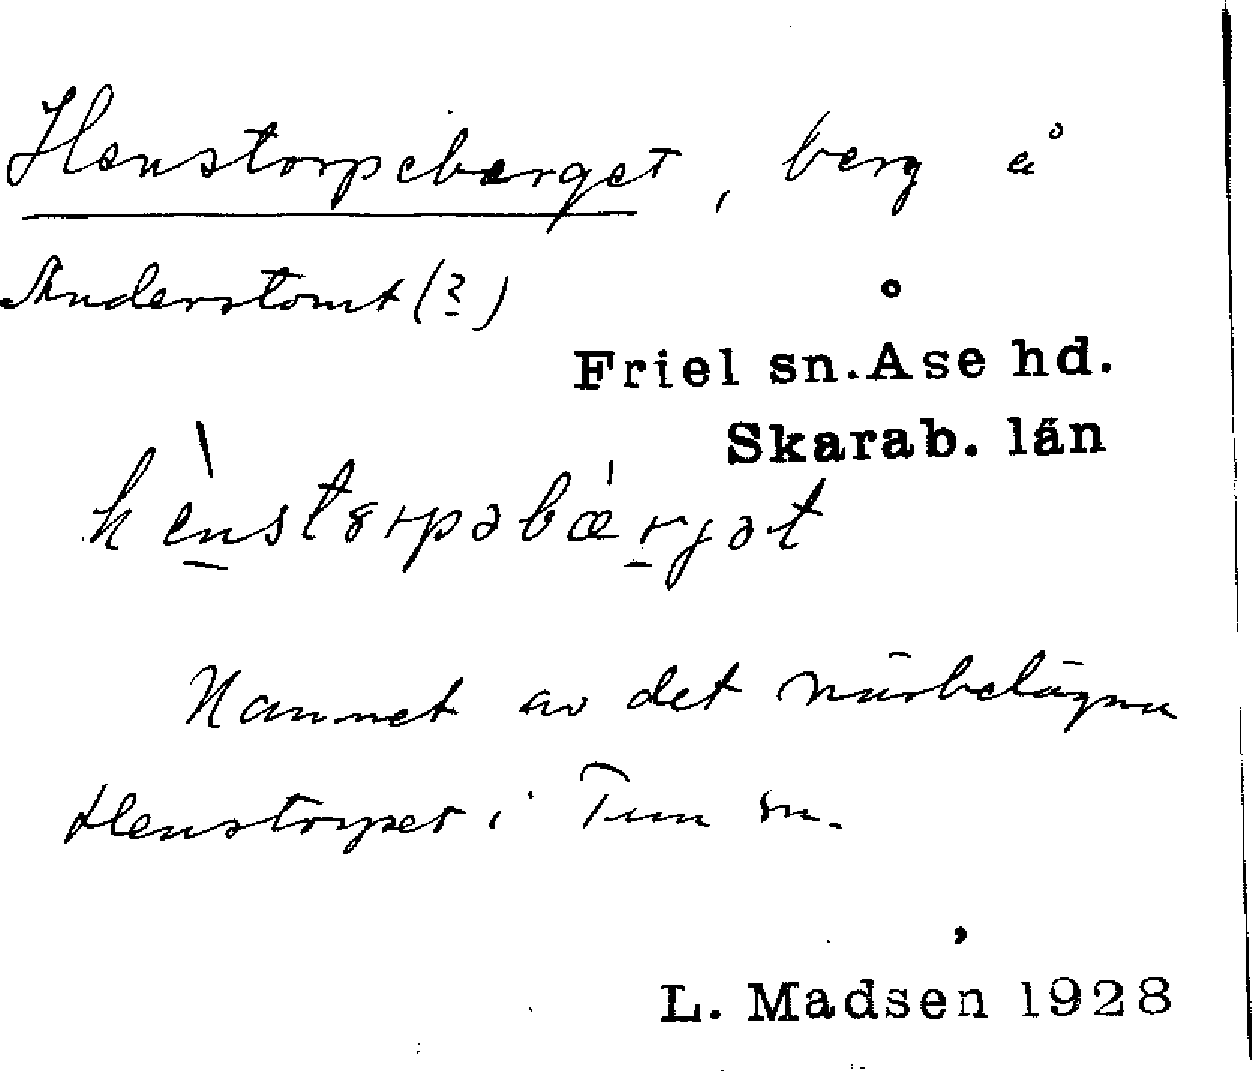 Henstorpeberget, berg å
Anderstomt (?)
Friel sn. Åse hd.
Skarab. län
hènstɵrpəbærjət
Namnet av det närbelägna
Henstorpet i Tun sn.
L. Madsen 1928